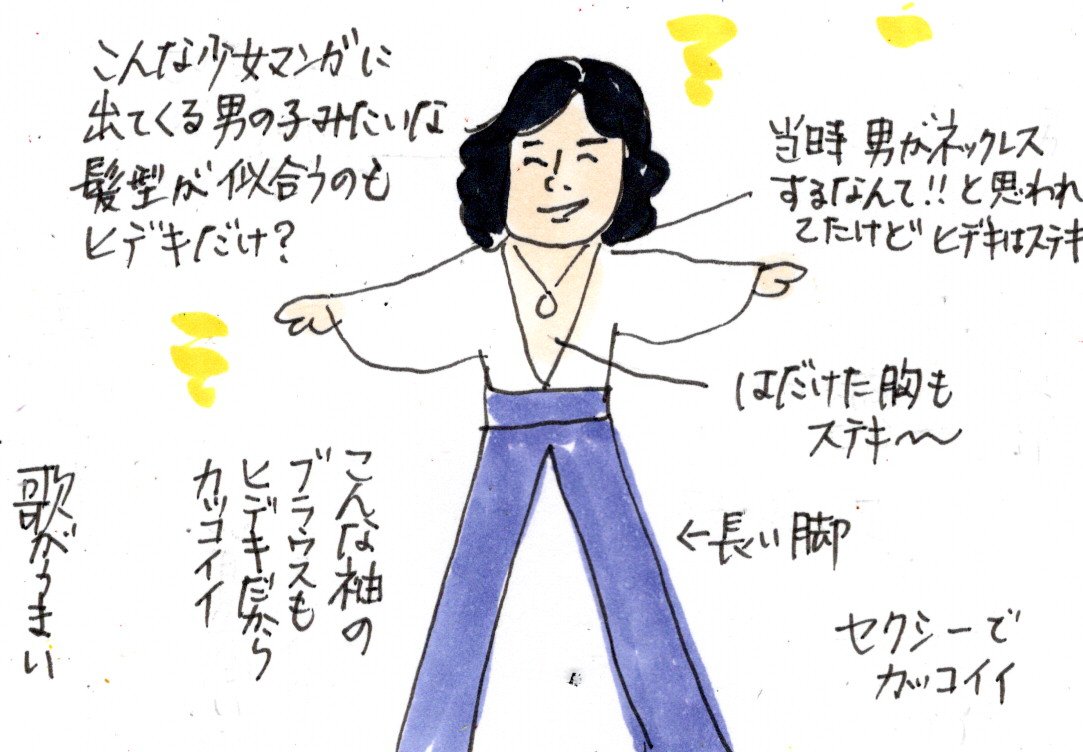 こんな少女マンガに
出てくる男の子みたいな
髪型が似合うのも
ヒデキだけ？
当時男がネックレス
するなんて!!と思われ
てたけどヒデキはステキ
はだけた胸も
ステキ〜〜
←長い脚
セクシーで
カッコイイ
こんな袖の
ブラウスも
ヒデキだから
カッコイイ
歌がうまい